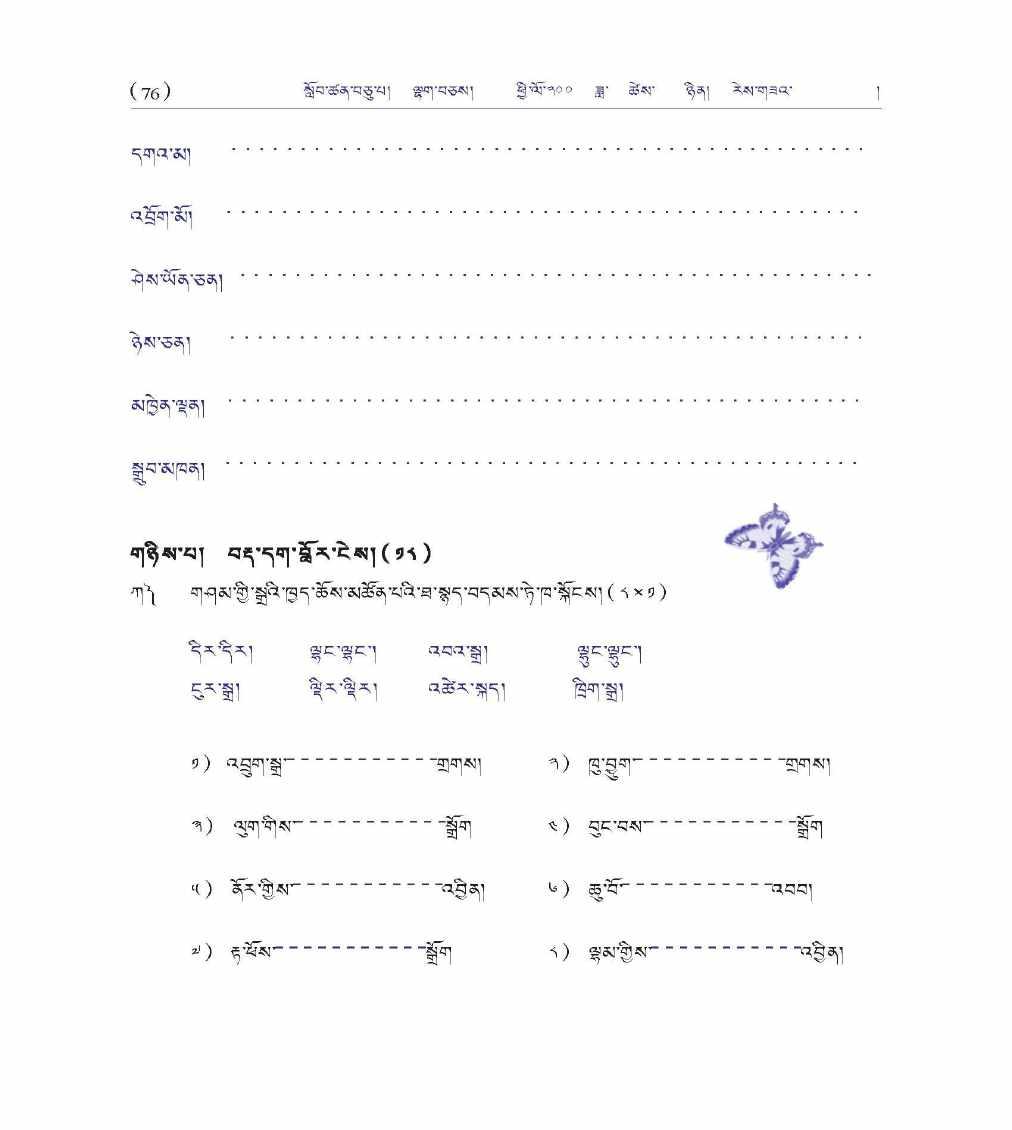 (76) སློབ་ཚན་བཅུ་པ། ལྷག་བཅས། ཕྱི་ལོ་༢༠༠ ཟླ་ ཚེས་ ཉིན། རེས་གཟའ་ །
དགའ་མ། . . . . . . . . . . . . . . . . . . . . . . . . . . . . . . . . . . . . . . . . . . . . . . .
འབྲོག་མོ། . . . . . . . . . . . . . . . . . . . . . . . . . . . . . . . . . . . . . . . . . . . . . . .
ཤེས་ཡོན་ཅན། . . . . . . . . . . . . . . . . . . . . . . . . . . . . . . . . . . . . . . . . . . . . . . .
ཉེས་ཅན། . . . . . . . . . . . . . . . . . . . . . . . . . . . . . . . . . . . . . . . . . . . . . . .
མཁྱེན་ལྡན། . . . . . . . . . . . . . . . . . . . . . . . . . . . . . . . . . . . . . . . . . . . . . . .
སྒྲུབ་མཁན། . . . . . . . . . . . . . . . . . . . . . . . . . . . . . . . . . . . . . . . . . . . . . . .
གཉིས་པ། བརྡ་དག་བློར་ངེས། (༡༨)
ཀ༽ གཤམ་གྱི་སྒྲའི་ཁྱད་ཆོས་མཚོན་པའི་ཐ་སྙད་བདམས་ཏེ་ཁ་སྐོངས། (༨×༡)
དིར་དིར། ལྷང་ལྷང་། འབའ་སྒྲ། ལྷུང་ལྷུང་།
ངུར་སྒྲ། ལྡིར་ལྡིར། འཚེར་སྐད། ཁྲིག་སྒྲ།
༡) འབྲུག་སྒྲ-----------གྲགས། ༢) ཁུ་བྱུག-----------གྲགས།
༣) ལུག་གིས-----------སྒྲོག ༤) བུང་བས-----------སྒྲོག
༥) ནོར་གྱིས-----------འབྱིན། ༦) ཆུ་བོ-----------འབབ།
༧) རྟ་ཕོས-----------སྒྲོག ༨) ལྷམ་གྱིས-----------འབྱིན།